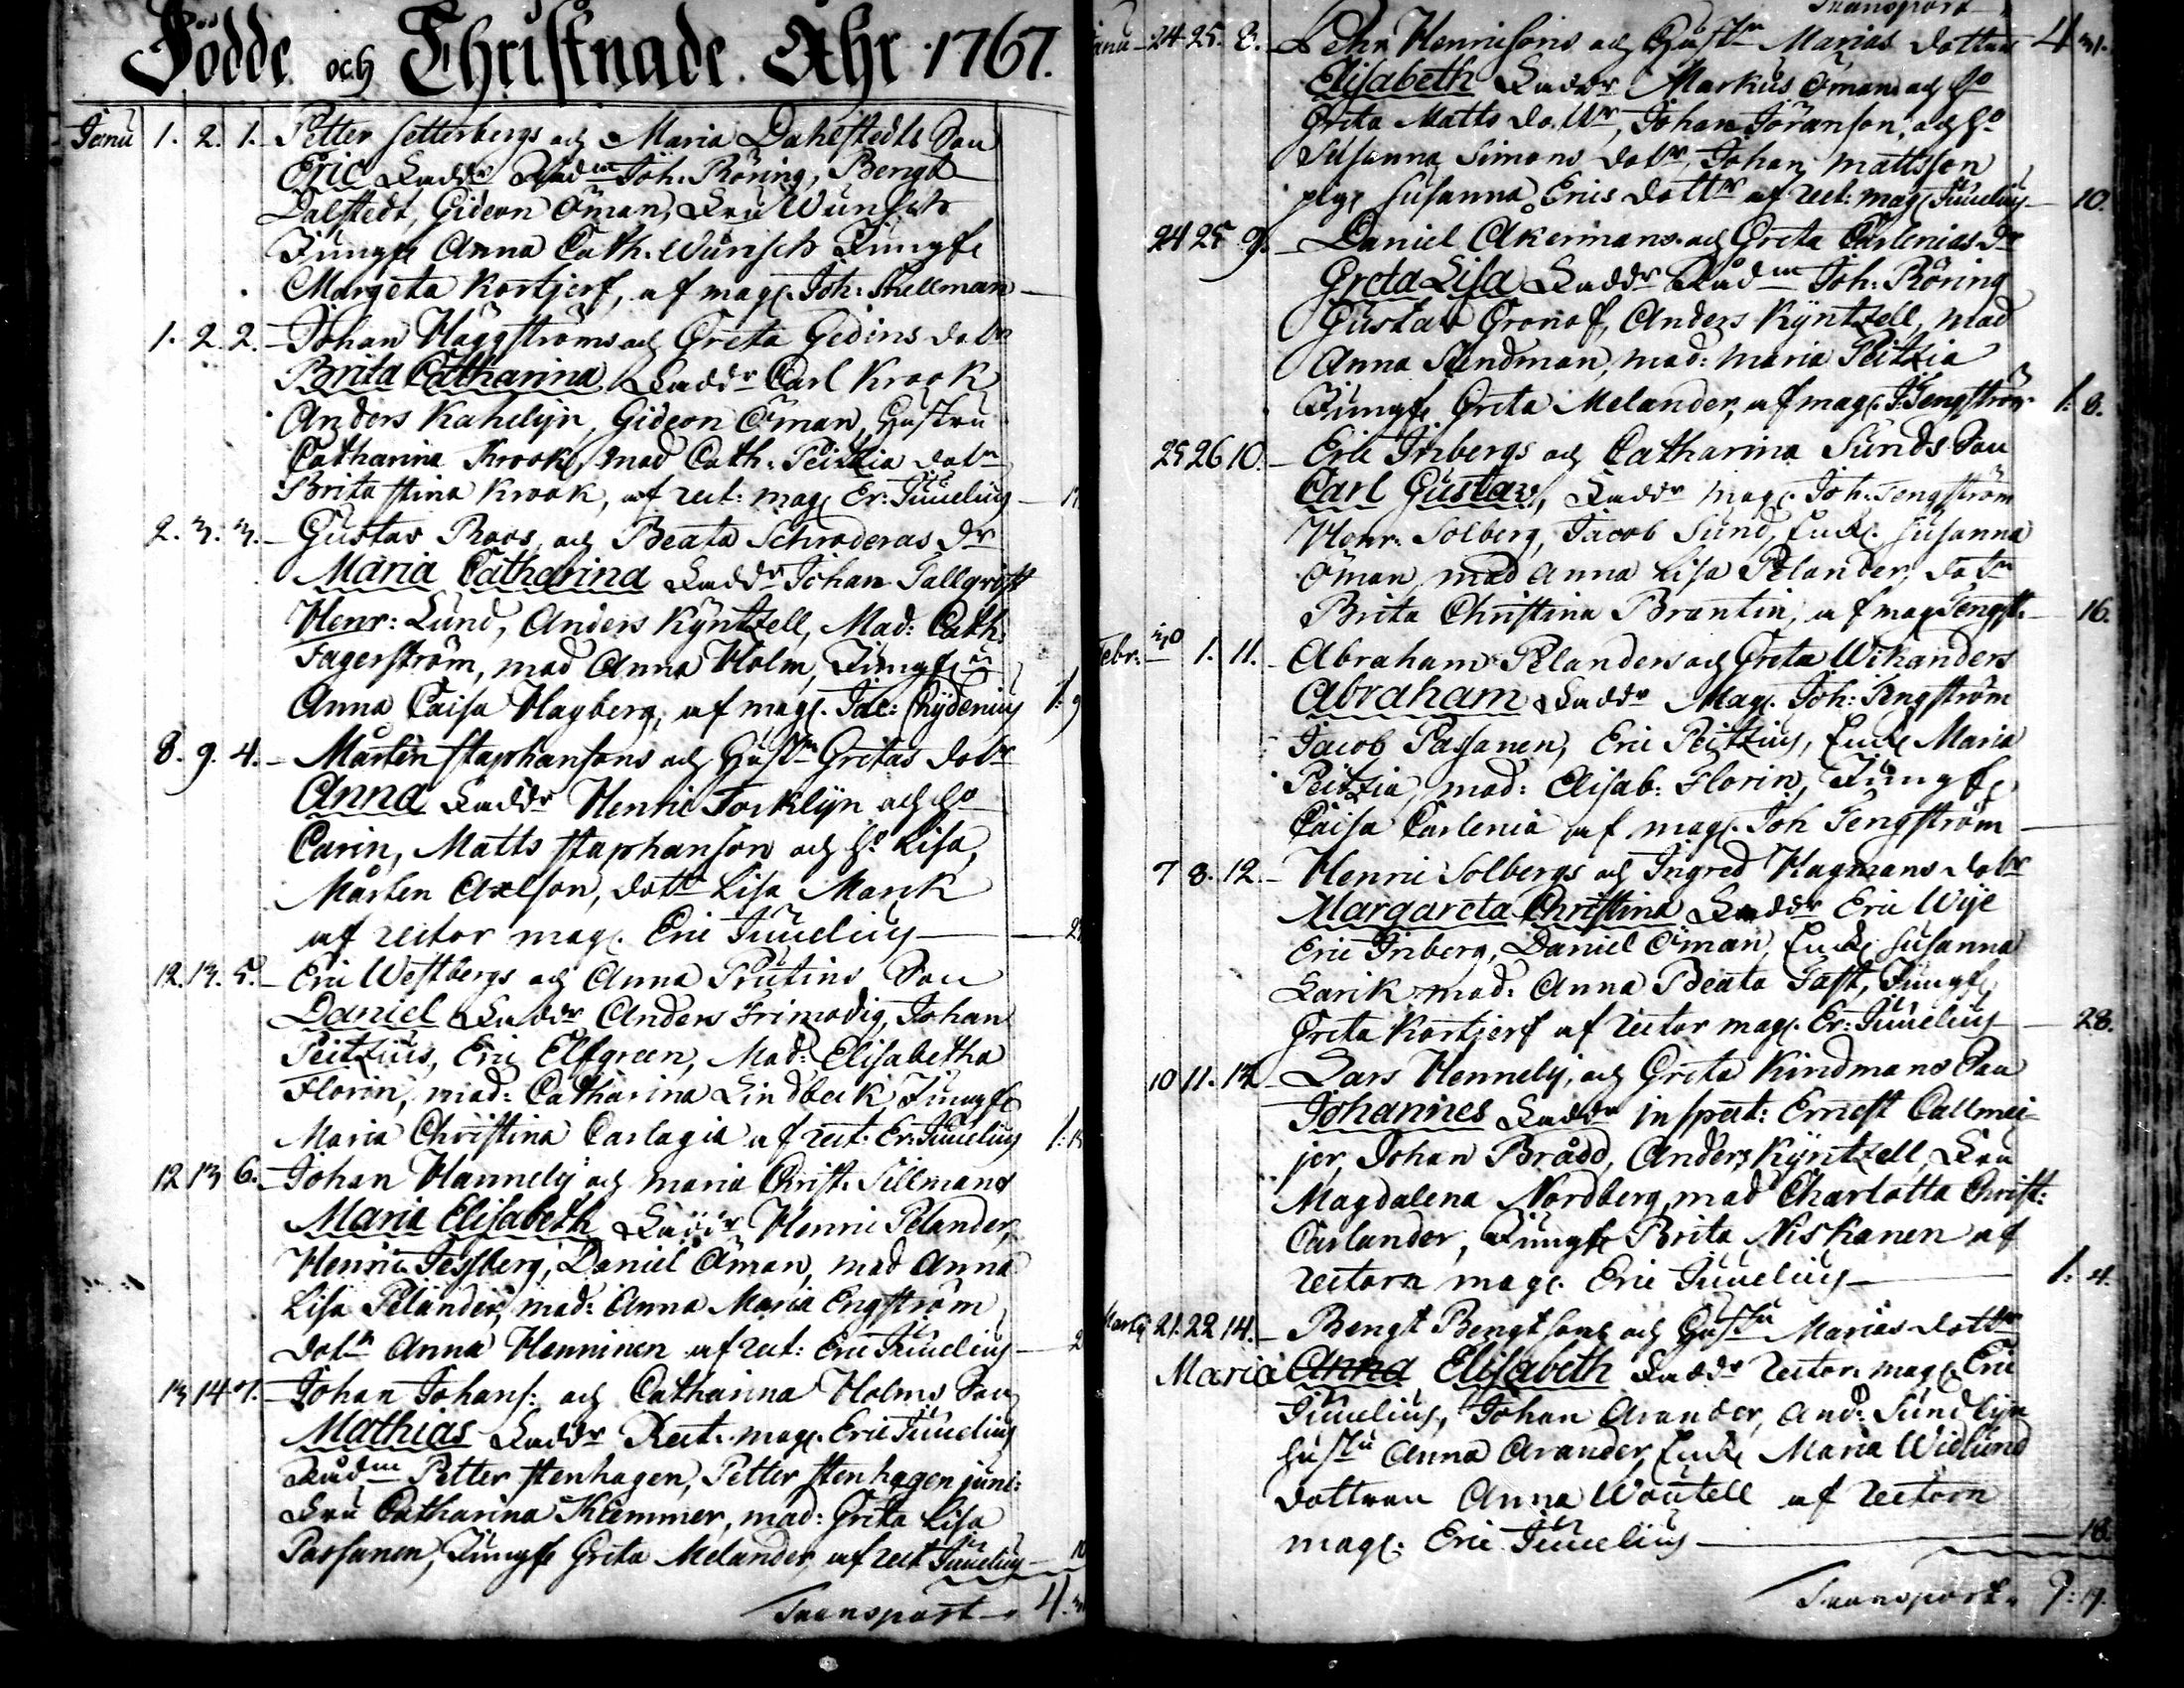 Födde och Christnade Ahr 1767.
Janu 1. 2. 1. Petter Setterbergs och Maria Dahlstedts Son
Eric Faddr Rådm Joh. Röring, Bengt
Dalstedt, Gideon Öman, Fru Wunsch
Jungfr Anna Cath. Wunsch Jungfr
Margeta Kortjerf, af mag. Joh. Snellman
1. 2. 2. Johan Häggströms och Greta Gedins dotr
Brita Catharina Faddr Carl Krook
Anders Kahelijn, Gideon Öman, Hustru
Catharina Krook, mad Cath. Peitzia dotr
Brita Stina Krook, af rect: mag. Er: Juuelius
2. 3. 3. Gustav Roos, och Beata Schroderas Dr
Maria Catharina Faddr Johan Tallqvist
Henr: Lund, Anders Kyntzell, Mad: Cath.
Fagerström, mad Anna Holm, Jungfru
Anna Caisa Hagberg, af mag. Jac: Chydenius 1: 9
8. 9. 4. Mårten Staphansons och Hustr Gretas dotr
Anna Faddr Henric Forklijn och ho
Carin, Matts Staphanson och ho Lisa,
Mårten Axelson, dottr Lisa Marck
af rector mag. Eric Juuelius
12. 13. 5. Eric Westbergs och Anna Prutins Son
Daniel Faddr Anders Frimodig, Johan
Peitzius, Eric Elfgreen, Mad: Elisabetha
Florin, mad: Catharina Lindbeck, Jungfr
Maria Christina Carlagia af rect: Er: Juuelius
12 13 6. Johan Hannely och Maria Christ. Sillmans
Maria Elisabeth Faddr Henric Pelander,
Henric Fessberg, Daniel Öman, mad Anna
Lisa Pelander, mad: Anna Maria Engström
dotr Anna Henninen af rect: Eric Juuelius
13 14 7. Johan Johans: och Catharina Holms Son
Mathias Faddr Rect. mag. Eric Juuelius
Rådm Petter Stenhagen, Petter Stenhagen juni:
Fru Catharina Klemmer, mad: Greta Lisa
Passanen, Jungfr Greta Melander, af rect Juuelius
Transport 4.
Transport
Janu 24 25. 8. Pehr Henricsons och Hustru Marias dotter 4 31.
Elisabeth Faddr Markus Öman och ho
Greta Matts dottr, Johan Jöranson, och ho
Susanna Simons dotr, Johan Mattsson
pig. Susanna Erics dottr af rect: mag Juuelius 10.
24 25 9. Daniel Åkermans och Greta Carlenias Dr
Greta Lisa Faddr Rådm Joh: Röring
Gustav Gronof, Anders Kyntzell, mad
Anna Sundman, mad: Maria Peitzia
Jungfr Greta Melander, af mag. J. Tengström 1. 8.
25 26 10. Eric Fribergs och Catharina Sunds Son
Carl Gustav, Faddr mag. Joh. Tengström
Henr. Solberg, Jacob Sund, Enck. Susanna
Öman, mad Anna Lisa Pelander, dotr
Brita Christina Brantin, af mag Tengst. 16.
Febr. 1. 11. Abraham Pelanders och Greta Wikanders
Abraham Faddr Mag. Joh: Tengström
Jacob Passanen, Eric Peitzius, Enck Maria
Peitzia, mad: Elisab: Florin, Jungfr
Caisa Carlenia af mag. Joh Tengström
7 8. 12. Henric Solbergs och Ingred Hagmans dotr
Margareta Christina Faddr Eric Wije
Eric Friberg, Daniel Öman, Enck. Susanna
Larik, mad: Anna Beata Fast, Jungfr
Greta Kortjerf af rector mag. Er: Juuelius 28.
10 11. 13 Lars Hennely, och Greta Kindmans Son
Johannes Faddr inspect: Ernest Callmei-
jer, Johan Brådd, Anders Kyntzell, Fru
Magdalena Nordberg, mad Charlotta Christ:
Carlander, Jungfr Brita Niskanen af
rectorn mag. Eric Juuelius 1. 4.
Marty 21. 22 14. Bengt Bengtsons och Hustru Marias dottr
Maria Anna Elisabeth Faddr rector mag. Eric
Juuelius, Johan Arander, And: Sundlijn
Hustru Anna Arander, Enck Maria Widlund
dottren Anna Woutell af rectorn
mag. Eric Juuelius 18.
Transport. 9: 19.